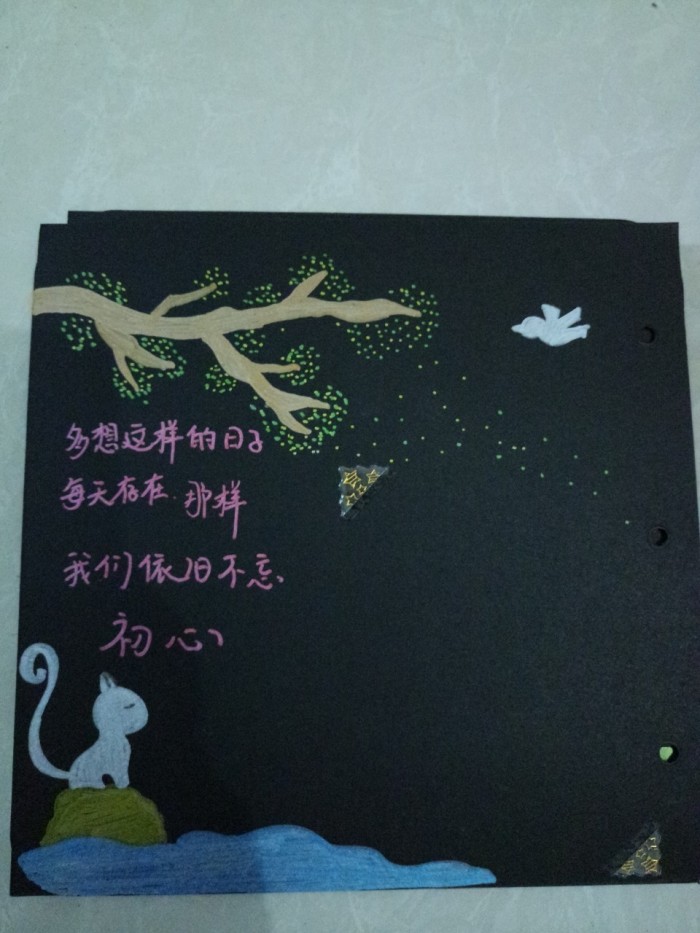 多想这样的日子
每天存在.那样
我们依旧不忘、
初心